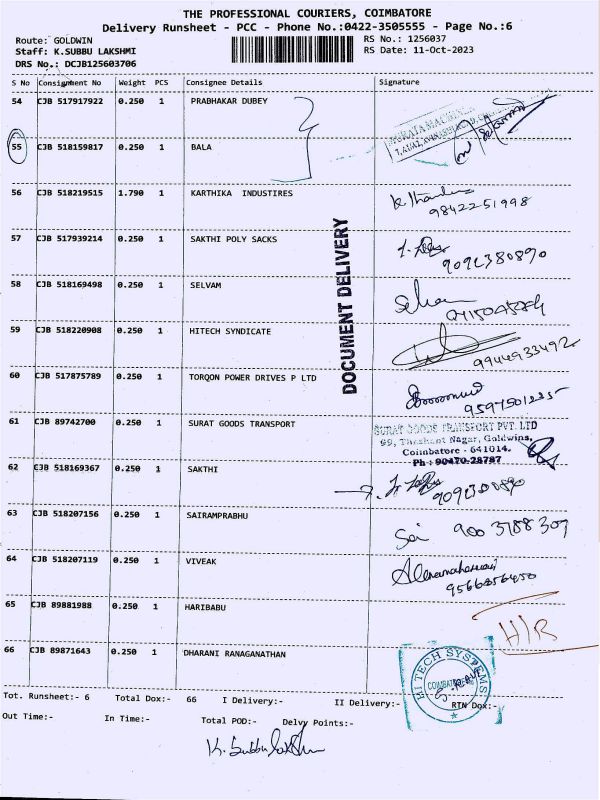 THE PROFESSIONAL COURIERS, COIMBATORE
Delivery Runsheet - PCC - Phone No.:0422-3505555 - Page No.:6
Route: GOLDWIN
RS No.: 1256037
Staff: K.SUBBU LAKSHMI
RS Date: 11-Oct-2023
DRS No.: DCJB125603706
S No Consignment No Weight PCS Consignee Details Signature
54 CJB 517917922 0.250 1 PRABHAKAR DUBEY
55 CJB 518159817 0.250 1 BALA
56 CJB 518219515 1.790 1 KARTHIKA INDUSTIRES
9842251998
57 CJB 517939214 0.250 1 SAKTHI POLY SACKS
9092380890
58 CJB 518169498 0.250 1 SELVAM
59 CJB 518220908 0.250 1 HITECH SYNDICATE
9944933492
DOCUMENT DELIVERY
60 CJB 517875789 0.250 1 TORQON POWER DRIVES P LTD
61 CJB 89742700 0.250 1 SURAT GOODS TRANSPORT
SURAT GOODS TRANSPORT PVT. LTD
99, Nagar, Goldwins,
Coimbatore - 641014.
Ph : 90470-28787
62 CJB 518169367 0.250 1 SAKTHI
63 CJB 518207156 0.250 1 SAIRAMPRABHU
Sai 9003788307
64 CJB 518207119 0.250 1 VIVEAK
9566856450
65 CJB 89881988 0.250 1 HARIBABU
H/R
66 CJB 89871643 0.250 1 DHARANI RANAGANATHAN
HI TECH SYSTEMS
Tot. Runsheet:- 6 Total Dox:- 66 I Delivery:- II Delivery:- RTN Dox:-
Out Time:- In Time:- Total POD:- Delvy Points:-
K. Subbu Lakshmi